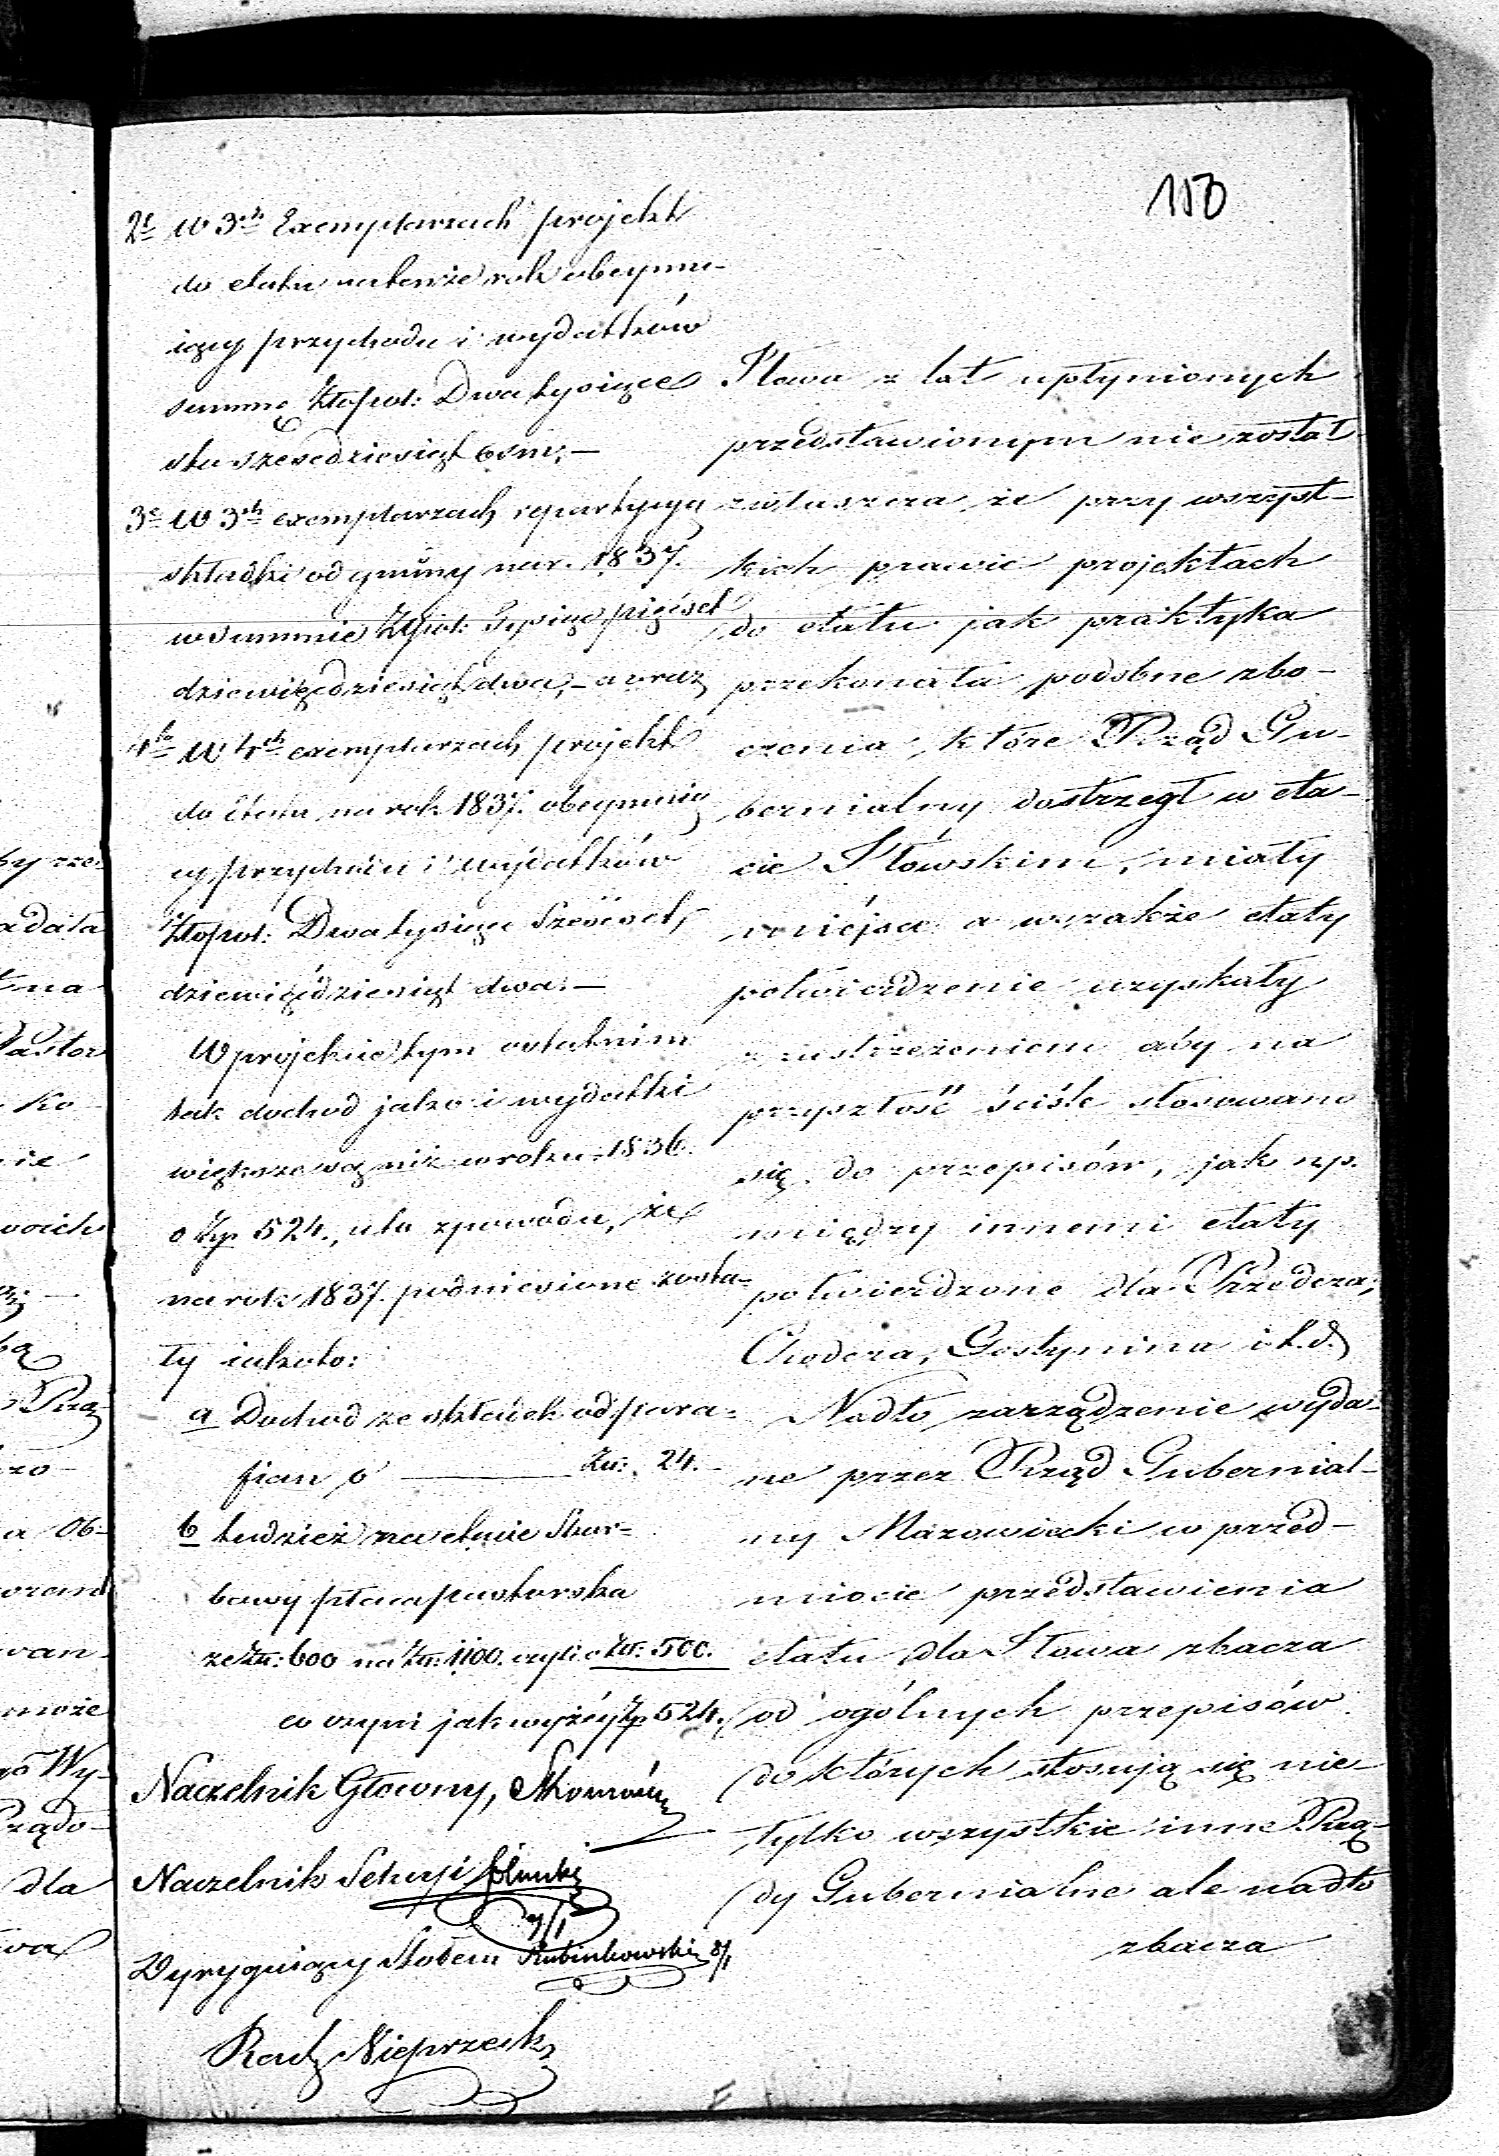 110
2e W 3ch Exemplarzach projekt
do etatu na tenże rok obeymu-
iący przychodu i wydatków
summę Złopol: Dwatysiące
sto sześćdziesiąt ośm,—
3e W 3ch exemplarzach repartycyą
składki od gminy na r. 1837.
w summie Złpol: Tysiąc pięćset
dziewięćdziesiąt dwa,— a wraz
4to W 4ch exemplarzach projekt
do Etatu na rok 1837. obeymuią
cy przychodu i wydatków
Złopol: Dwatysiące Sześćset,
dziewięćdziesiąt dwa.—
W projekcie tym ostatnim
tak dochod jako i wydatki
większe są niż w roku 1836.
o Złp 524., a to z powodu, że
na rok 1837. podniesione zosta-
ły iakoto:
a Dochod ze składek od para-
fian o ——— Złt: 24.—
b tudzież na etacie Skar-
bowy płaca pastorska
ze Złt: 600 na Złt: 1100. czyli o Złt: 500.
co czyni jak wyżéy Złp 524.
Naczelnik Głowny,
Naczelnik Sekcyi
Dyryguiący Stołem Rubinkowski
Radz Nieprzecki
Iłowa z lat upłynionych
przedstawionym nie został
zwłaszcza że przy wszyst-
kich prawie projektach
do etatu jak praktyka
przekonała podobne zbo-
czenia, które Rząd Gu-
bernialny dostrzegł w eta-
cie Iłowskim, miały
miéjsce a wszakże etaty
potwierdzenie uzyskały
z zastrzeżeniem aby na
przyszłość ściśle stosowano
się do przepisów, jak np.
między innemi etaty
potwierdzone dla Przedcza,
Chodcza, Gostynina i t. d.
Nadto zarządzenie wyda-
ne przez Rząd Gubernial-
ny Mazowiecki w przed-
miocie przedstawienia
etatu dla Iłowa zbacza
od ogólnych przepisów
do których stosują się nie-
tylko wszystkie inne Rzą-
dy Gubernialne ale nadto
zbacza